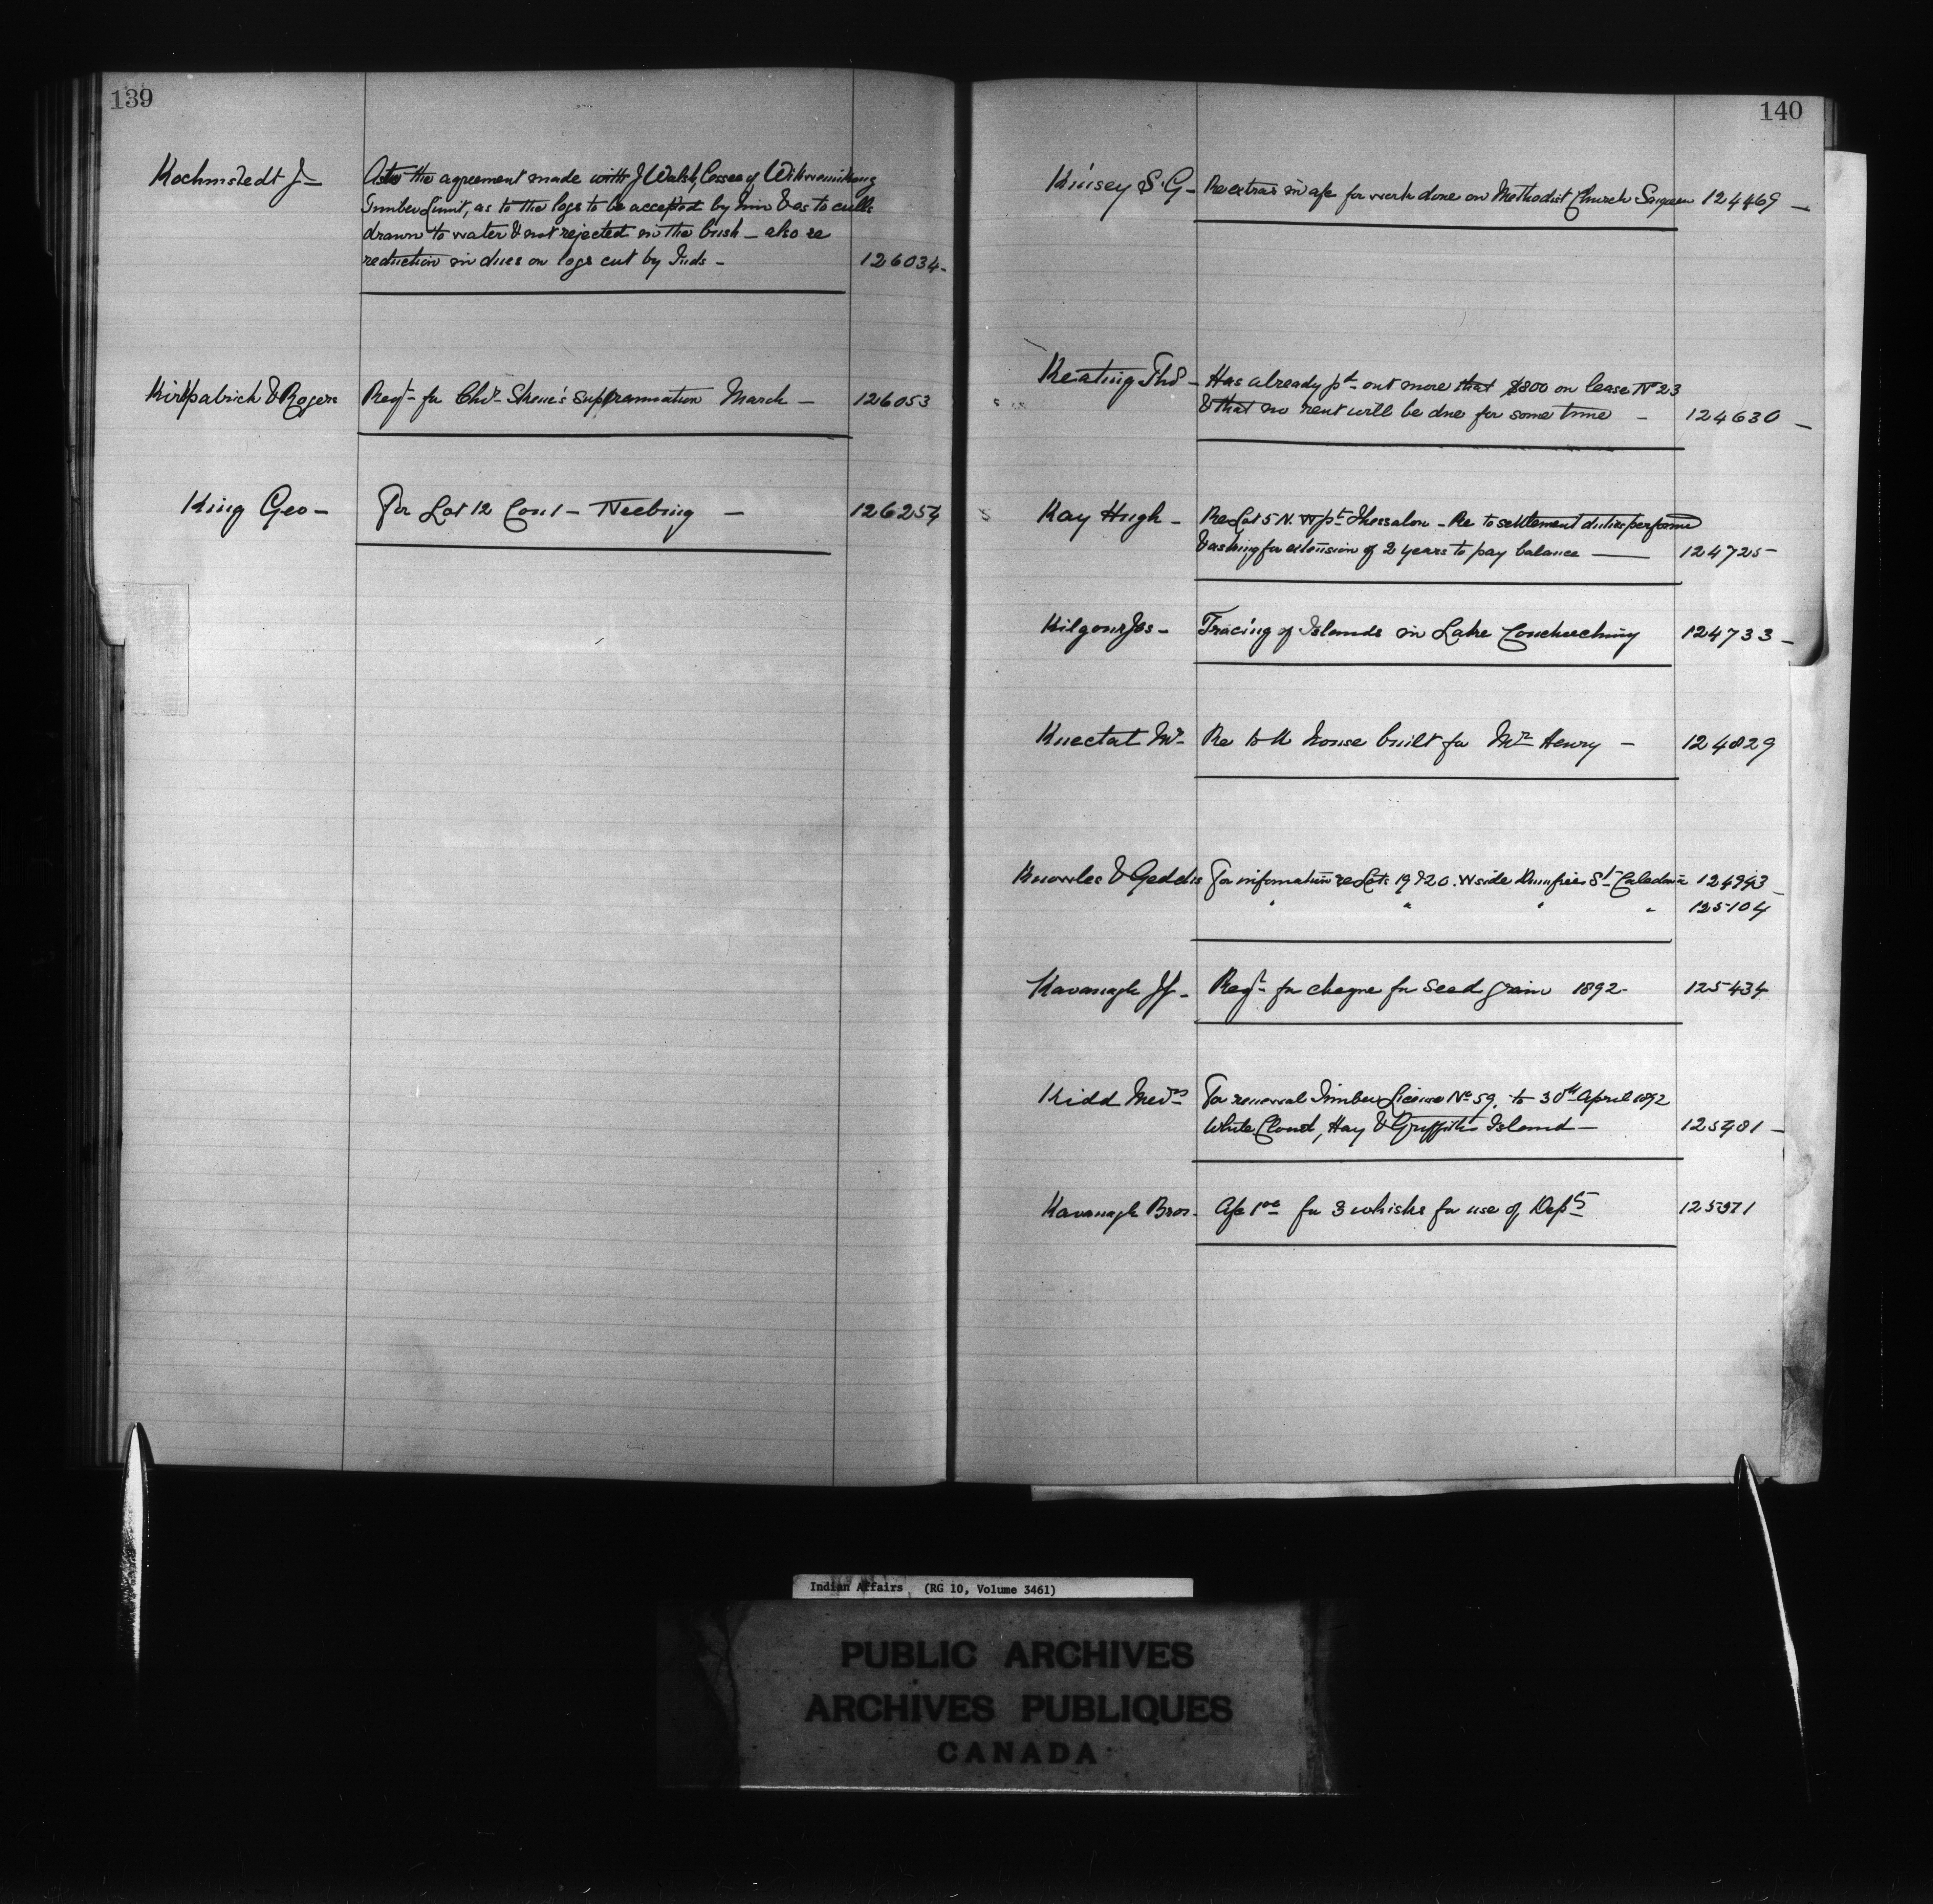 139
Kochmstedt J -
As to the agreement made with J Walsh, lessee of Wikwemikong
Timber Limit, as to the logs to be accepted by him & as to culls
drawn to water & not rejected in the bush - also re
reduction in dues on logs cut by Inds - 126034 -
Kirkpatrick & Rogers Reqt for Chr Skene's Superannuation March - 126053
King Geo - For Lot 12 Con 1 - Neebing - 126254
140
Kinsey S. G - Re extras in a/c for work done on Methodist Church Saugeen 124469 -
Keating Thos - Has already pd out more that $800 on lease No 23
& that no rent will be due for some time - 124630 -
Kay Hugh - Re Lot 5 N. W pt Thessalon - Re to settlement duties performed
& asking for extension of 2 years to pay balance - 124725 -
Kilgour Jos - Tracing of Islands in Lake Couchiching 124733 -
Knectat Mr - Re to house built for Mr Henry - 124829
Knowles & Geddis For information re Lots 19 & 20. W side Dumfries St Caledonia 124993 -
" " " " 125104
Kavanagh Jf - Reqt for cheque for seed grain 1892 - 125434
Kidd Messrs For renewal Timber License No 59. to 30th April 1892
White Cloud, Hay & Griffiths Island - 125481 -
Kavanagh Bros - A/c for 3 whisks for use of Dept 125971
Indian Affairs (RG 10, Volume 3461)
PUBLIC ARCHIVES
ARCHIVES PUBLIQUES
CANADA